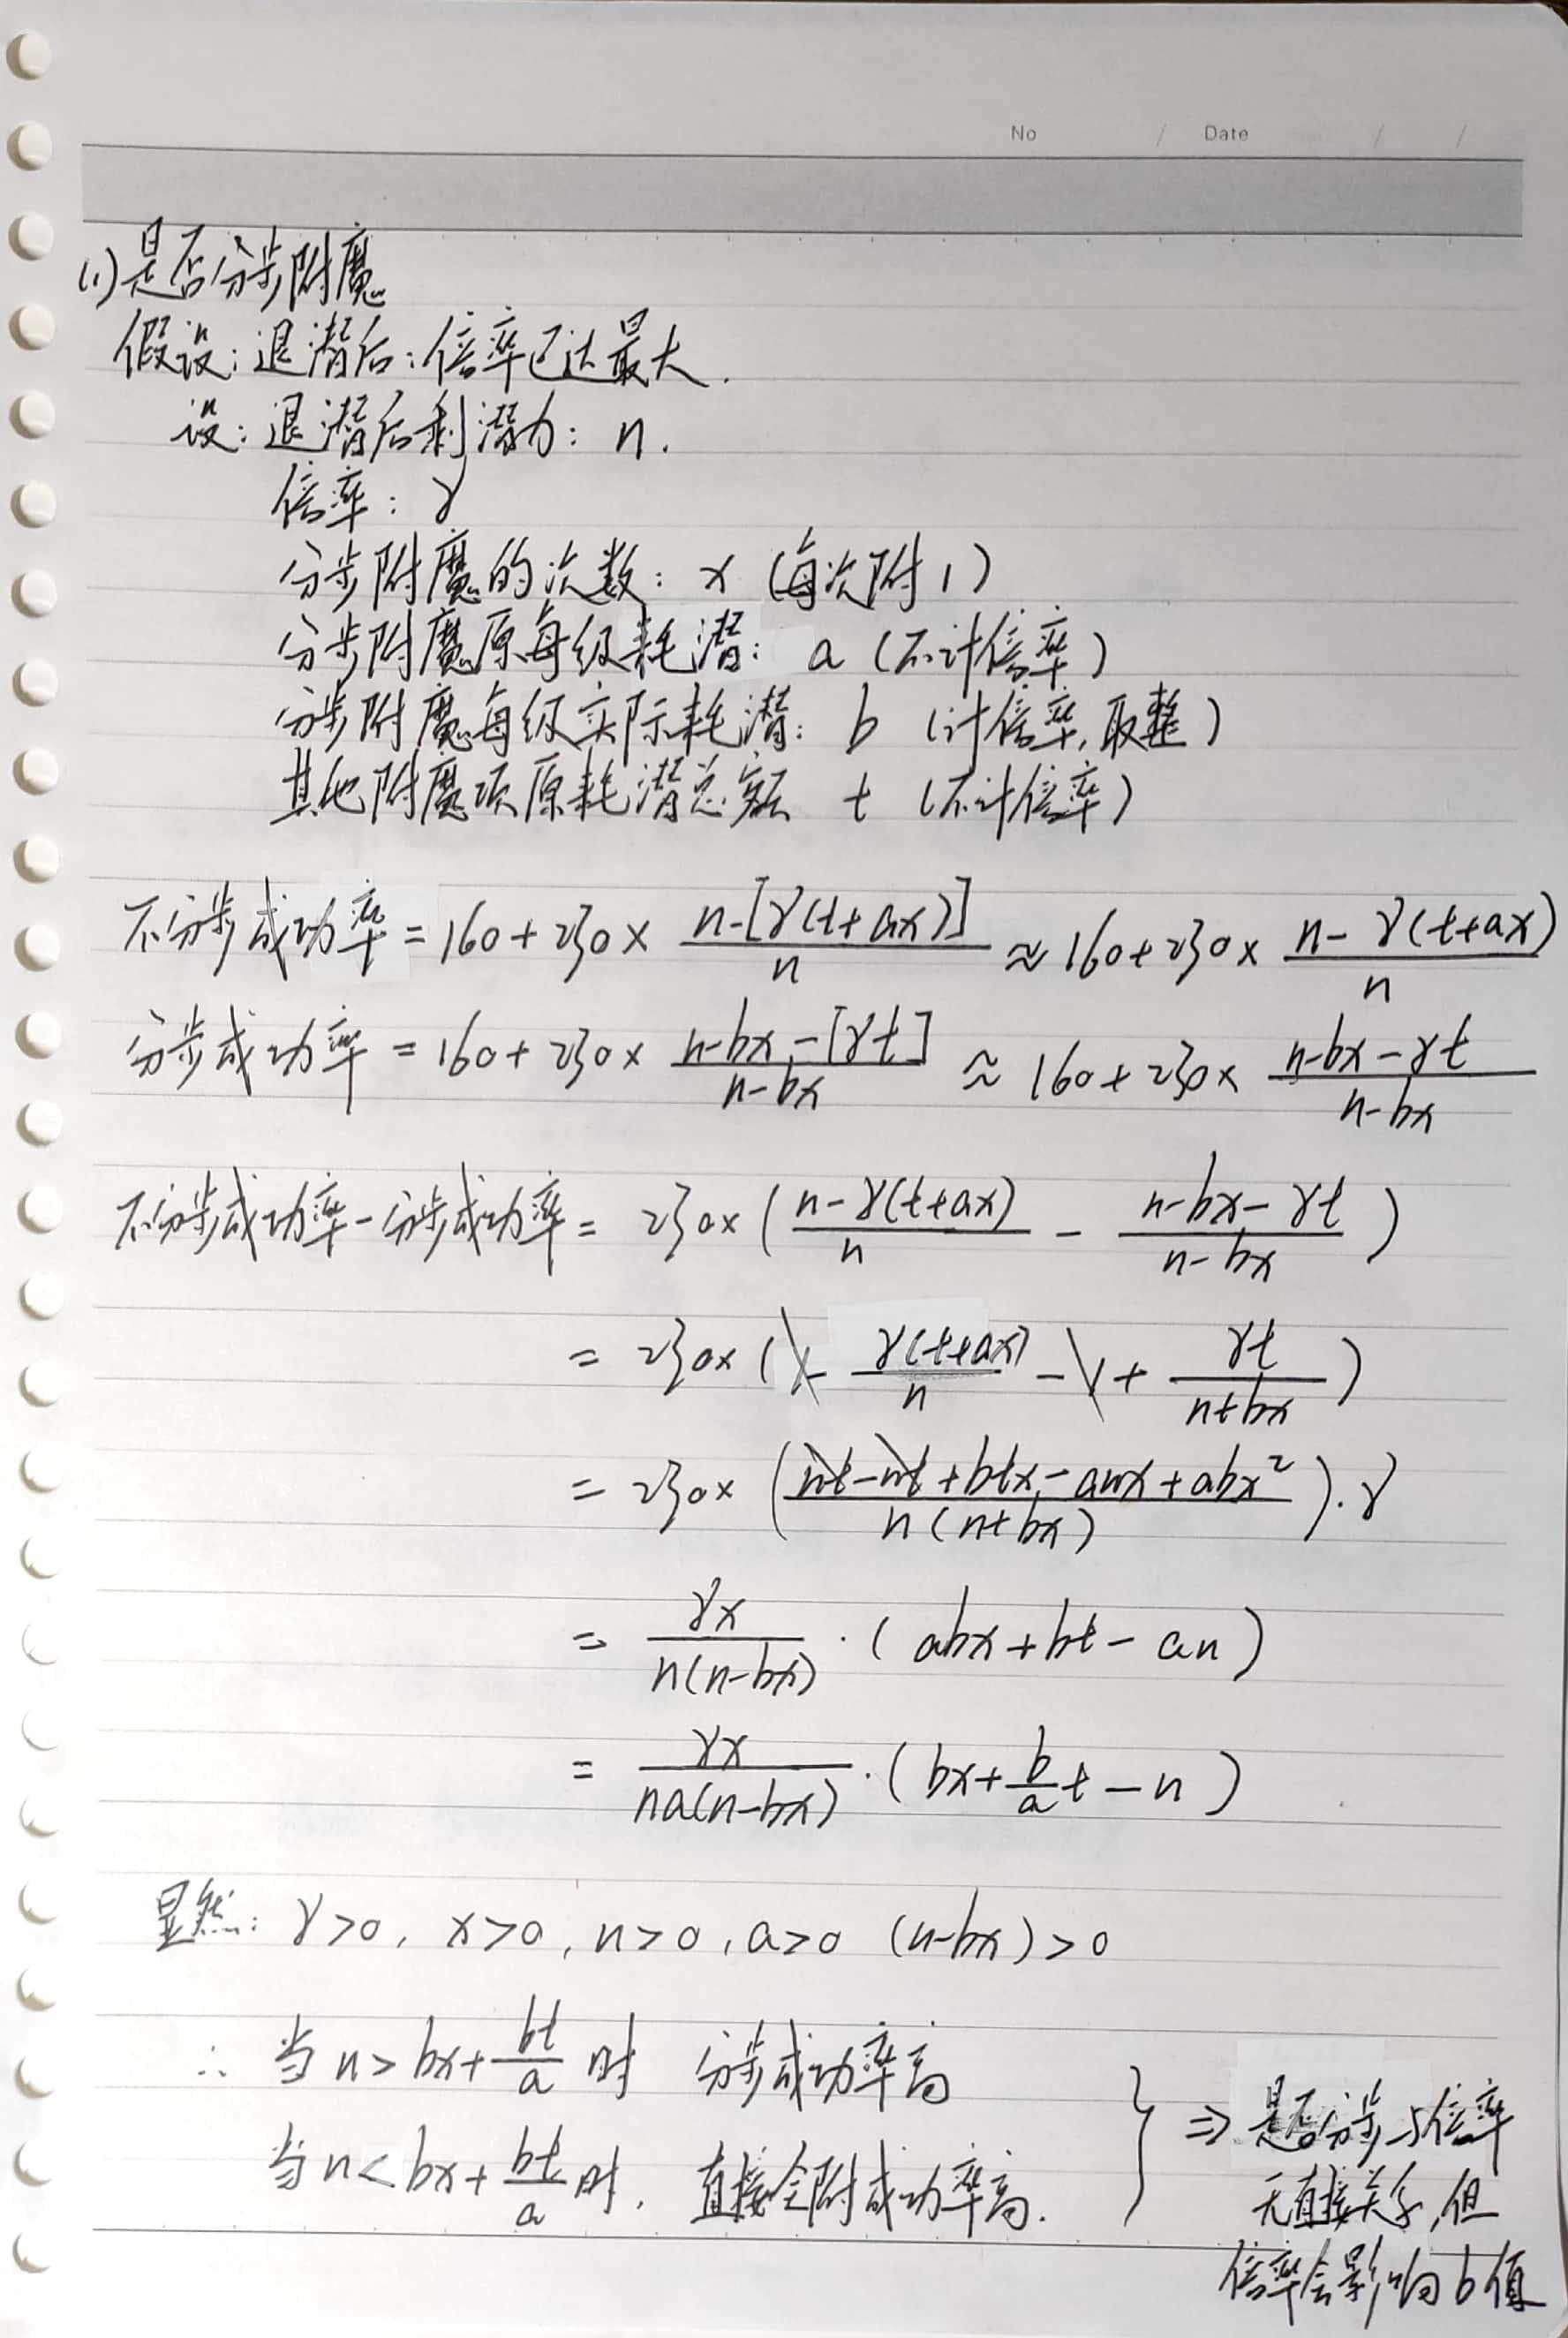 No / Date / /
(1)是否分步附魔
假设:退潜后:倍率已达最大.
设:退潜后剩潜力: n.
倍率: γ
分步附魔的次数: x (每次附1)
分步附魔原每级耗潜: a (不计倍率)
分步附魔每级实际耗潜: b (计倍率,取整)
其他附魔项原耗潜总额 t (不计倍率)
不分步成功率 = 160 + 230 × \frac{n-[γ(t+ax)]}{n} ≈ 160 + 230 × \frac{n-γ(t+ax)}{n}
分步成功率 = 160 + 230 × \frac{n-bx-[γt]}{n-bx} ≈ 160 + 230 × \frac{n-bx-γt}{n-bx}
不分步成功率-分步成功率 = 230 × ( \frac{n-γ(t+ax)}{n} - \frac{n-bx-γt}{n-bx} )
= 230 × ( 1 - \frac{γ(t+ax)}{n} - 1 + \frac{γt}{n+bx} )
= 230 × ( \frac{nt-nt+btx-anx+abx²}{n(n+bx)} ) · γ
= \frac{γx}{n(n-bx)} · ( abx + bt - an )
= \frac{γx}{na(n-bx)} · ( bx + \frac{b}{a}t - n )
显然: γ>0, x>0, n>0, a>0 (n-bx)>0
∴ 当 n > bx + \frac{bt}{a} 时 分步成功率高
当 n < bx + \frac{bt}{a} 时, 直接全附成功率高.
} ⇒ 是否分步与倍率
无直接关系,但
倍率会影响b值